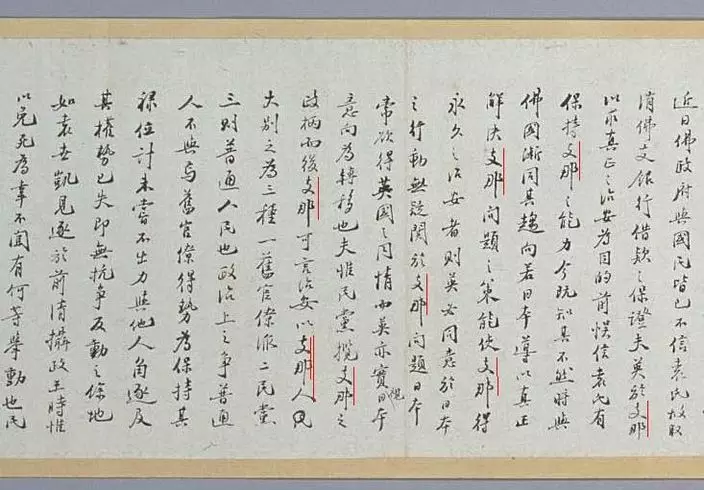 近日佛政府與國民皆已不信袁氏故取
消佛文銀行借款之保證夫英於支那
以求真正之治安為目的前悞信袁氏有
保持支那之能力今既知其不然將與
佛國漸同其趨向若日本導以真正
解決支那問題之策能使支那得
永久之治安者則英必同意於日本
之行動無疑關於支那問題日本
常欲得英國之同情而英亦實視日本
意向為轉移也夫惟民黨攬支那之
政柄而後支那可言治安以支那人民
大別之為三種一舊官僚派二民黨
三則普通人民也政治上之爭普通
人不與焉舊官僚得勢為保持其
祿位計未嘗不出力與他人角逐及
其權勢已失即無抗爭反動之餘地
如袁世凱見逐於前清攝政王時惟
以免死為幸不聞有何等舉動也民